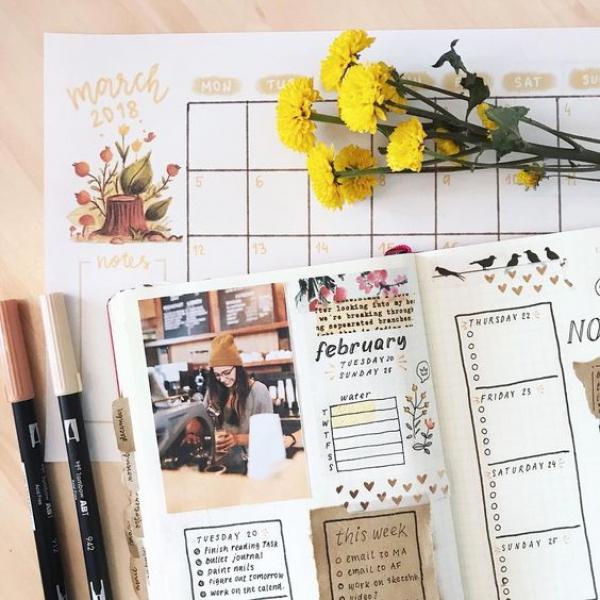 march
2018
MON
SAT
4
5
6
12
13
14
notes
after looking into my
we're breaking through
ng separated branches
february
TUESDAY 20
SUNDAY 25
water
T
W
T
F
S
S
TUESDAY 20
finish reading TASK
bullet journal
paint nails
figure out tomorrow
work on the calend.
this week
email to MA
email to AF
work on sketchb
video?
THURSDAY 22
FRIDAY 23
SATURDAY 24
SUNDAY 25
NO
december
Tombow ABT
942